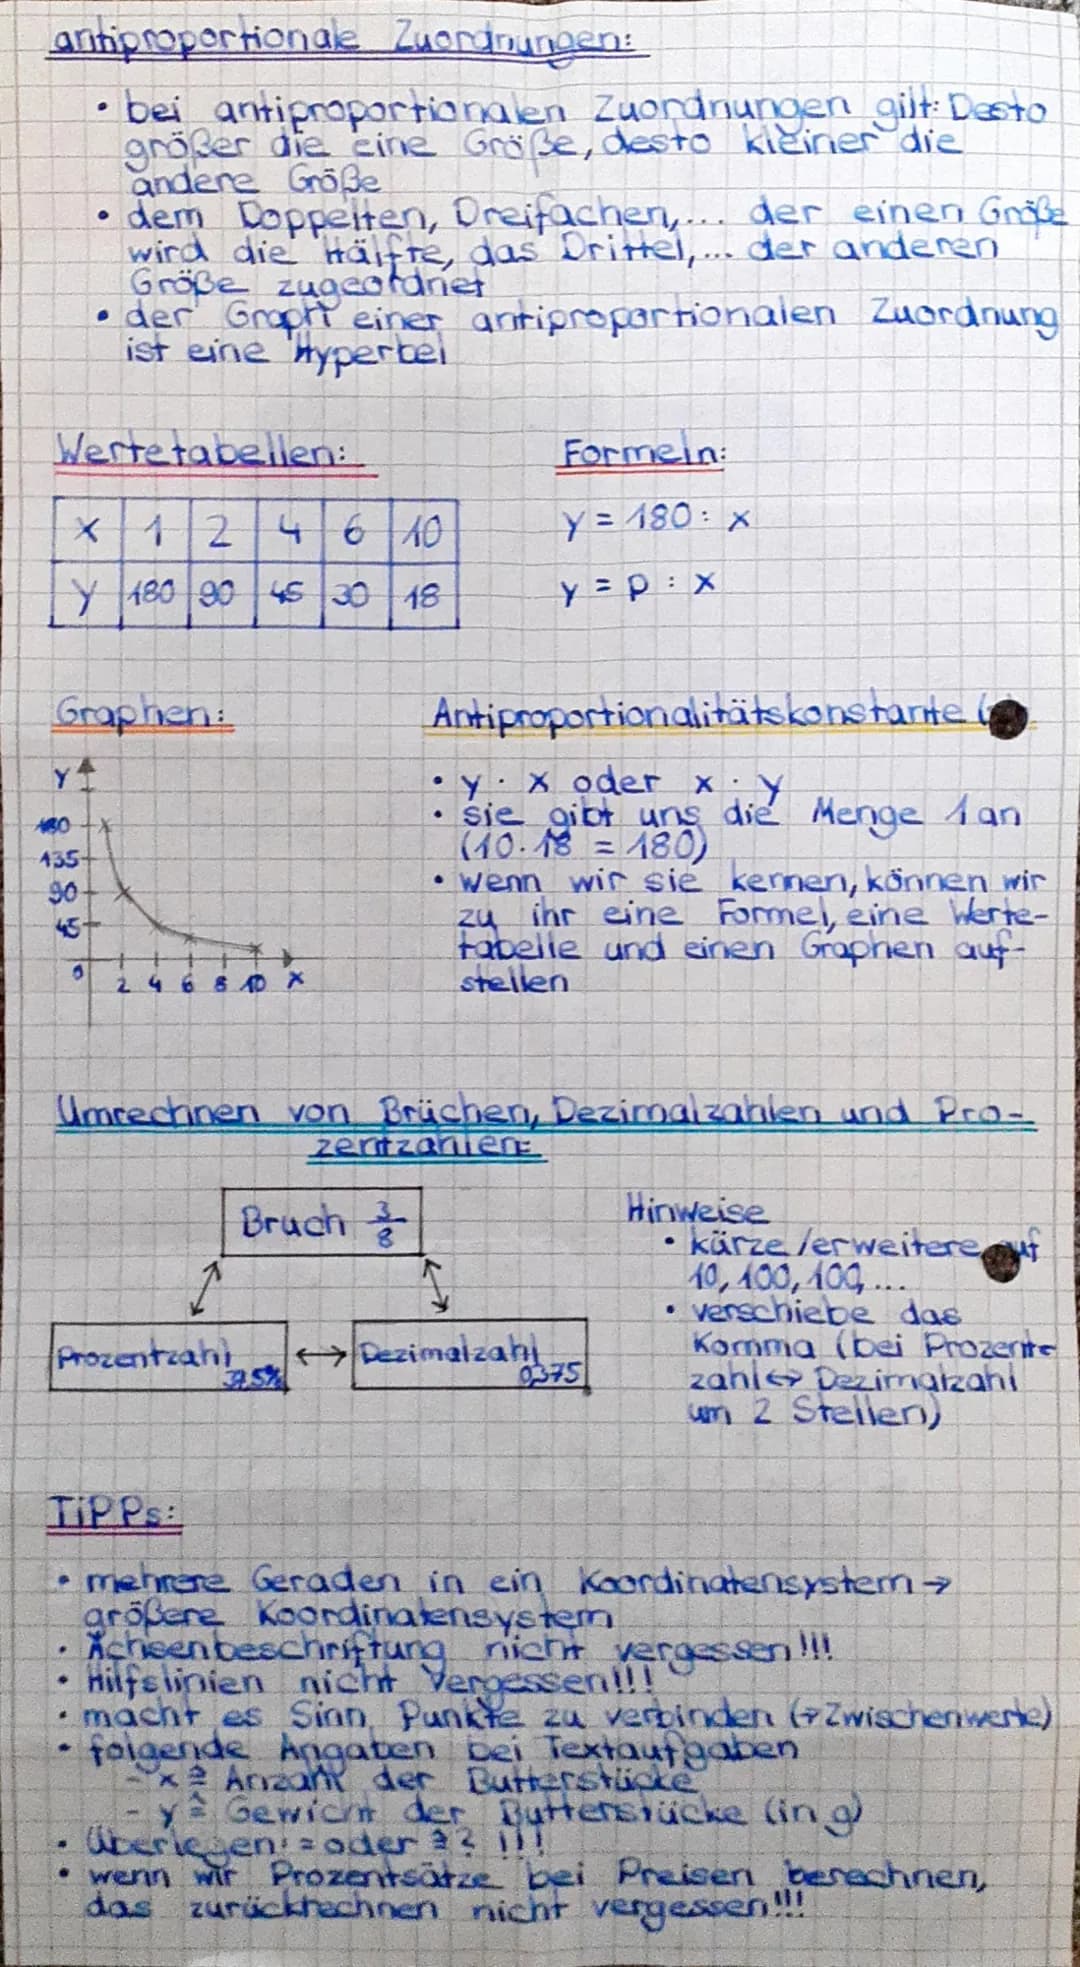 antiproportionale Zuordnungen:
• bei antiproportionalen Zuordnungen gilt: Desto
größer die eine Größe, desto kleiner die
andere Größe
• dem Doppelten, Dreifachen,... der einen Größe
wird die Hälfte, das Drittel,... der anderen
Größe zugeordnet
• der Graph einer antiproportionalen Zuordnung
ist eine Hyperbel
Wertetabellen:
x 1 2 4 6 10
y 180 90 45 30 18
Formeln:
y = 180 : x
y = p : x
Graphen:
y
180
135
90
45
0
2 4 6 8 10 x
Antiproportionalitätskonstante (
• y · x oder x · y
• sie gibt uns die Menge 1 an
(10·18 = 180)
• wenn wir sie kennen, können wir
zu ihr eine Formel, eine Werte-
tabelle und einen Graphen auf-
stellen
Umrechnen von Brüchen, Dezimalzahlen und Pro-
zentzahlen:
Bruch 3/8
Prozentzahl
37,5%
↔
Dezimalzahl
0,375
Hinweise
• kürze/erweitere auf
10, 100, 100, ...
• verschiebe das
Komma (bei Prozent-
zahl ↔ Dezimalzahl
um 2 Stellen)
TiPPs:
• mehrere Geraden in ein Koordinatensystem →
größere Koordinatensystem
• Achsenbeschriftung nicht vergessen!!!
• Hilfslinien nicht vergessen!!!
• macht es Sinn Punkte zu verbinden (→ Zwischenwerte)
• folgende Angaben bei Textaufgaben
- x ≙ Anzahl der Butterstücke
- y ≙ Gewicht der Butterstücke (in g)
• Überlegen: = oder ≙? !!!
• wenn wir Prozentsätze bei Preisen berechnen,
das zurückrechnen nicht vergessen!!!